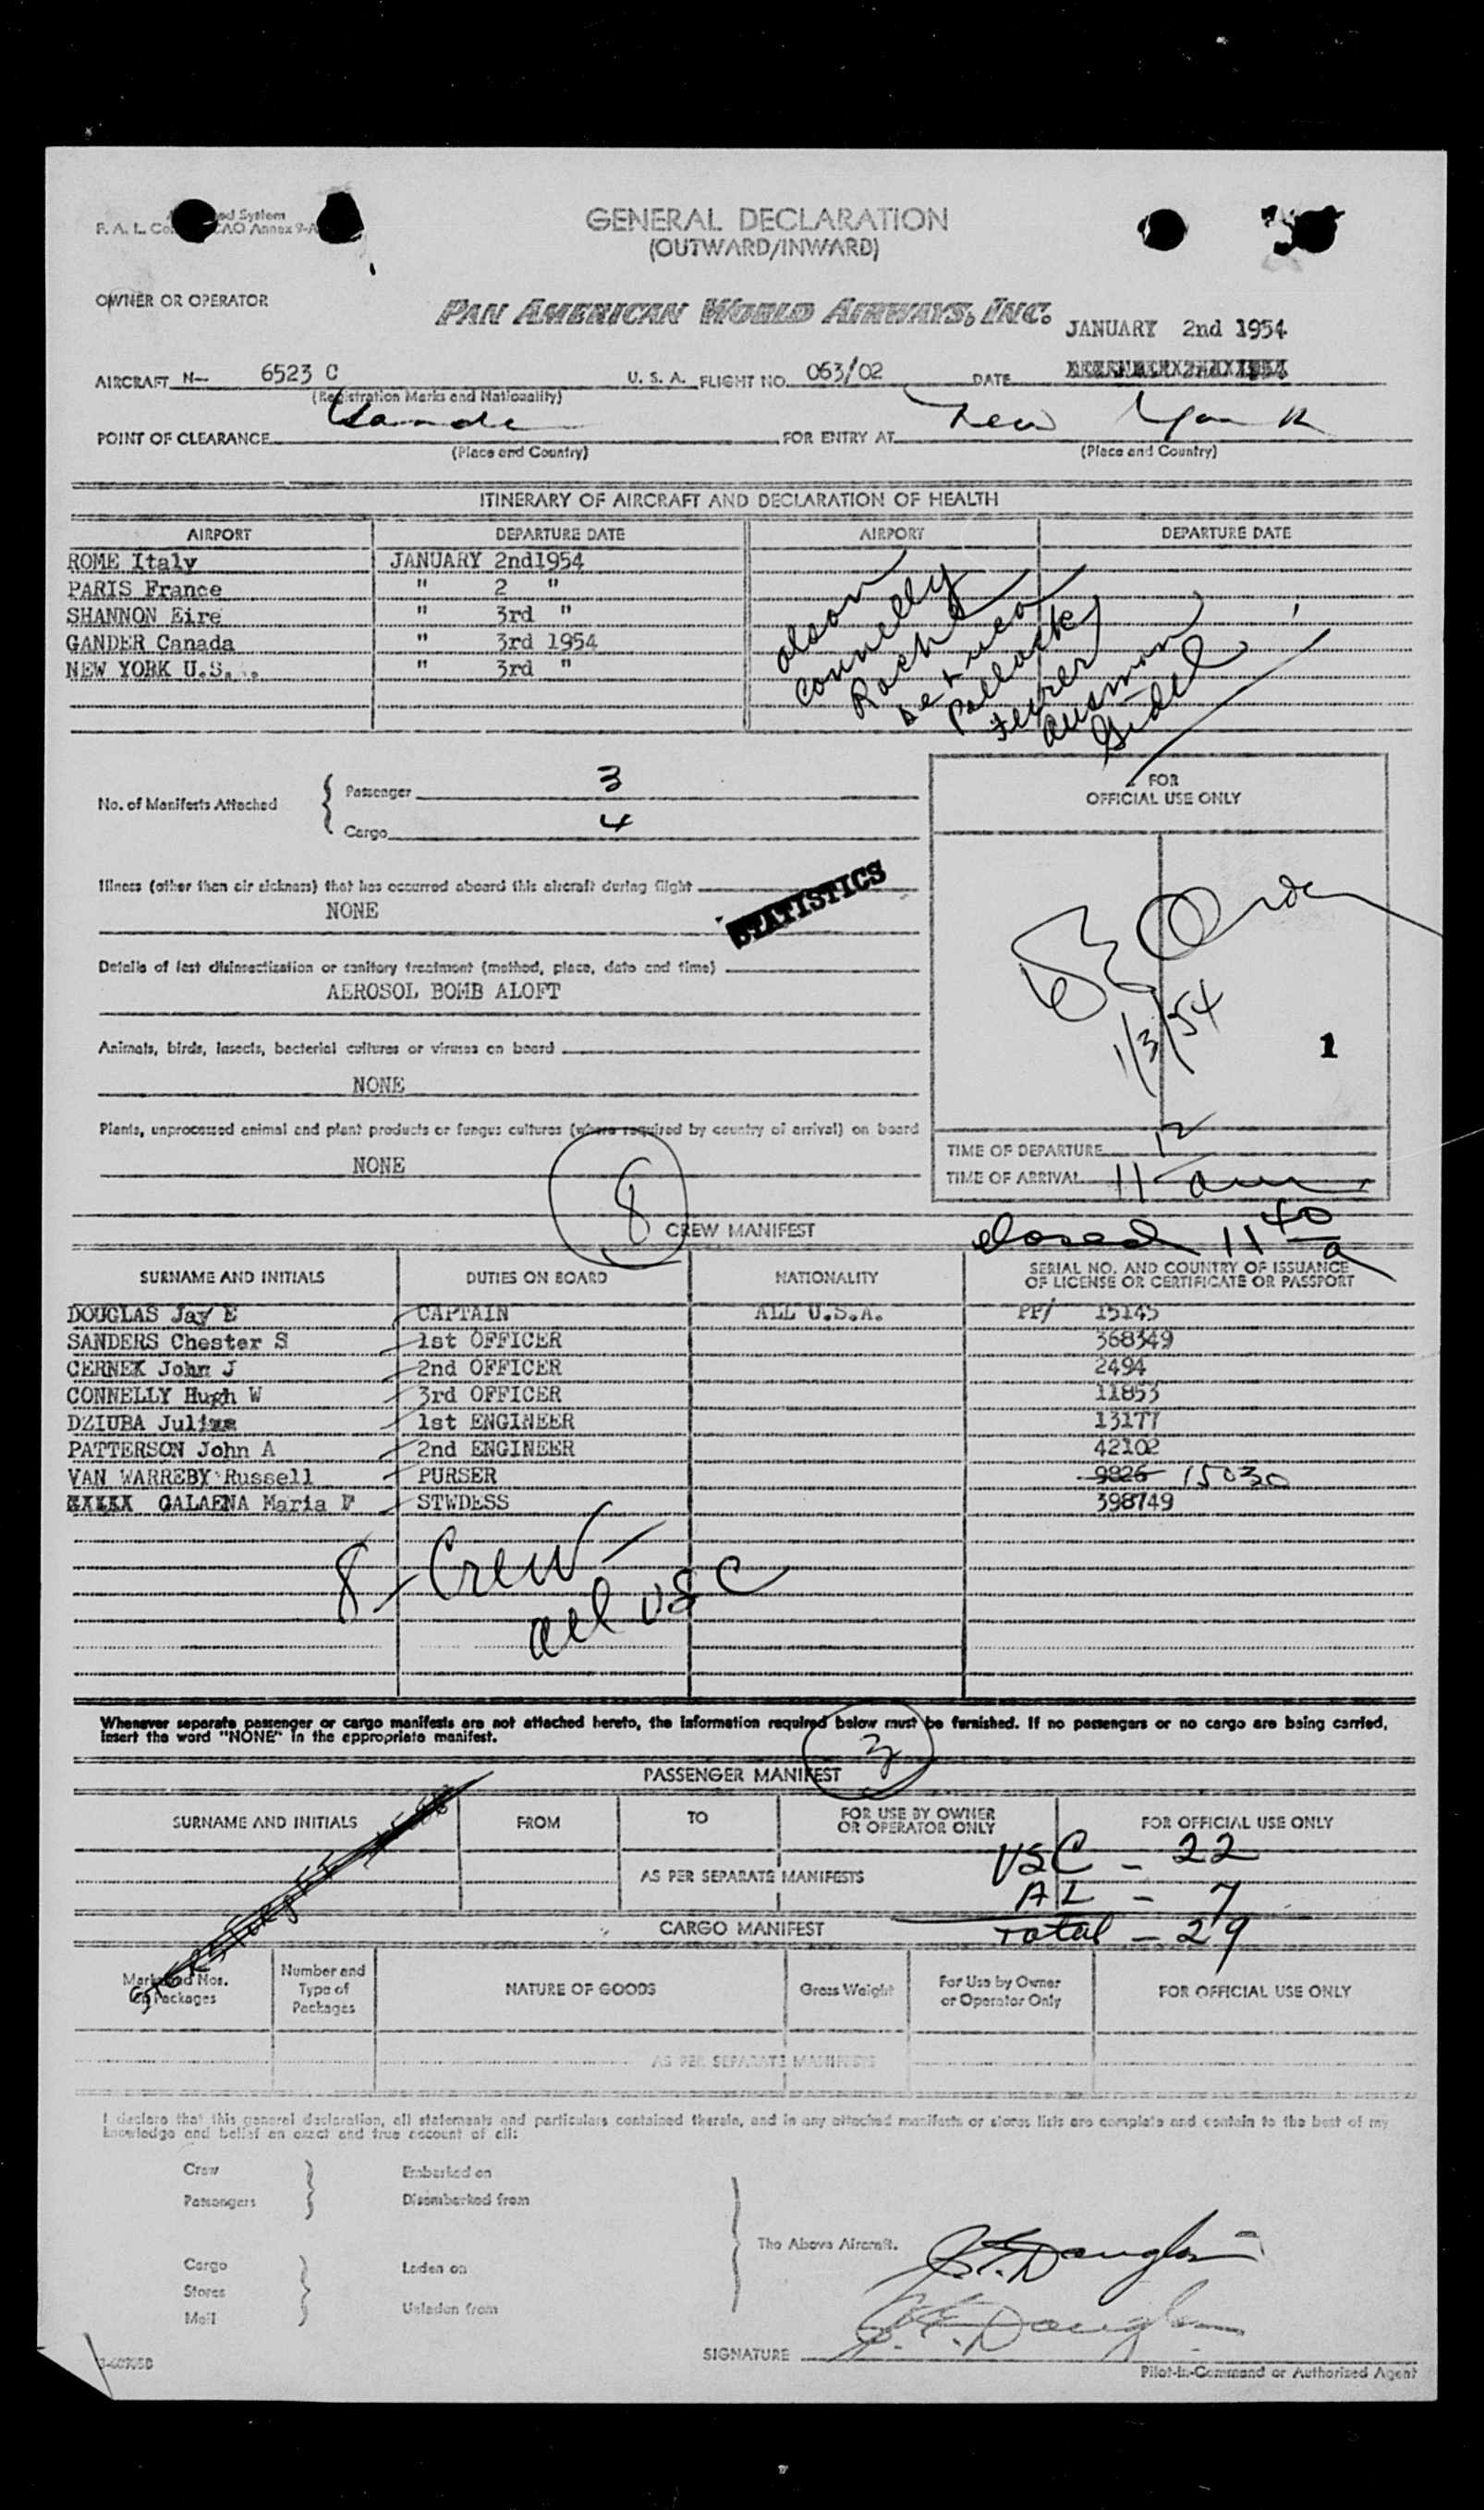 ed System
F. A. L. Co CAO Annex 9-A
GENERAL DECLARATION
(OUTWARD/INWARD)
OWNER OR OPERATOR
PAN AMERICAN WORLD AIRWAYS, INC.
JANUARY 2nd 1954
AIRCRAFT N— 6523 C U. S. A. FLIGHT NO. 063/02 DATE
(Registration Marks and Nationality)
POINT OF CLEARANCE FOR ENTRY AT New York
(Place and Country) (Place and Country)
ITINERARY OF AIRCRAFT AND DECLARATION OF HEALTH
AIRPORT DEPARTURE DATE AIRPORT DEPARTURE DATE
ROME Italy JANUARY 2nd1954
PARIS France " 2 "
SHANNON Eire " 3rd "
GANDER Canada " 3rd 1954
NEW YORK U.S. " 3rd "
Olson
Connelly
Pollock
Feurer
Ausman
No. of Manifests Attached
Passenger 3
Cargo 4
FOR
OFFICIAL USE ONLY
Illness (other than air sickness) that has occurred aboard this aircraft during flight
NONE
STATISTICS
Details of last disinsectization or sanitary treatment (method, place, date and time)
AEROSOL BOMB ALOFT
1/3/54
1
Animals, birds, insects, bacterial cultures or viruses on board
NONE
Plants, unprocessed animal and plant products or fungus cultures (where required by country of arrival) on board
NONE
TIME OF DEPARTURE
TIME OF ARRIVAL 11 12 am
8
CREW MANIFEST
closed 11 40 a
SURNAME AND INITIALS DUTIES ON BOARD NATIONALITY SERIAL NO. AND COUNTRY OF ISSUANCE
OF LICENSE OR CERTIFICATE OR PASSPORT
DOUGLAS Jay E CAPTAIN ALL U.S.A. PP/ 15145
SANDERS Chester S 1st OFFICER 368349
CERNEK John J 2nd OFFICER 2494
CONNELLY Hugh W 3rd OFFICER 11853
DZIUBA Julius 1st ENGINEER 13177
PATTERSON John A 2nd ENGINEER 42102
VAN WARREBY Russell PURSER 9826 15030
XXXXX GALAENA Maria F STWDESS 398749
8 - Crew -
all USC
Whenever separate passenger or cargo manifests are not attached hereto, the information required below must be furnished. If no passengers or no cargo are being carried,
insert the word "NONE" in the appropriate manifest.
3
PASSENGER MANIFEST
SURNAME AND INITIALS FROM TO FOR USE BY OWNER
OR OPERATOR ONLY FOR OFFICIAL USE ONLY
AS PER SEPARATE MANIFESTS
USC - 22
AL - 7
Total - 29
CARGO MANIFEST
Marks and Nos.
on Packages
Number and
Type of
Packages
NATURE OF GOODS
Gross Weight
For Use by Owner
or Operator Only
FOR OFFICIAL USE ONLY
AS PER SEPARATE MANIFESTS
I declare that this general declaration, all statements and particulars contained therein, and in any attached manifests or stores lists are complete and contain to the best of my
knowledge and belief an exact and true account of all:
Crew Embarked on
Passengers Disembarked from
The Above Aircraft.
J.E. Douglas
Cargo Laden on
Stores
Mail Unladen from
J.E. Douglas
SIGNATURE
Pilot-In-Command or Authorized Agent